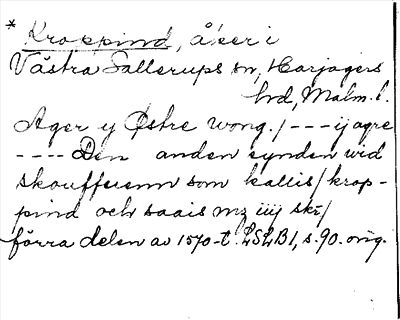 * Kroppind, åker i
Västra Sallerups sn, Harjagers
hrd, Malm. l.
Ager y Østre wong. / --- ij agre
---- Den anden synden wid
skoufferenn som kallis / krop-
pind och saais mz iiij skr /
förra delen av 1570-t. LSLB1, s. 90. orig.